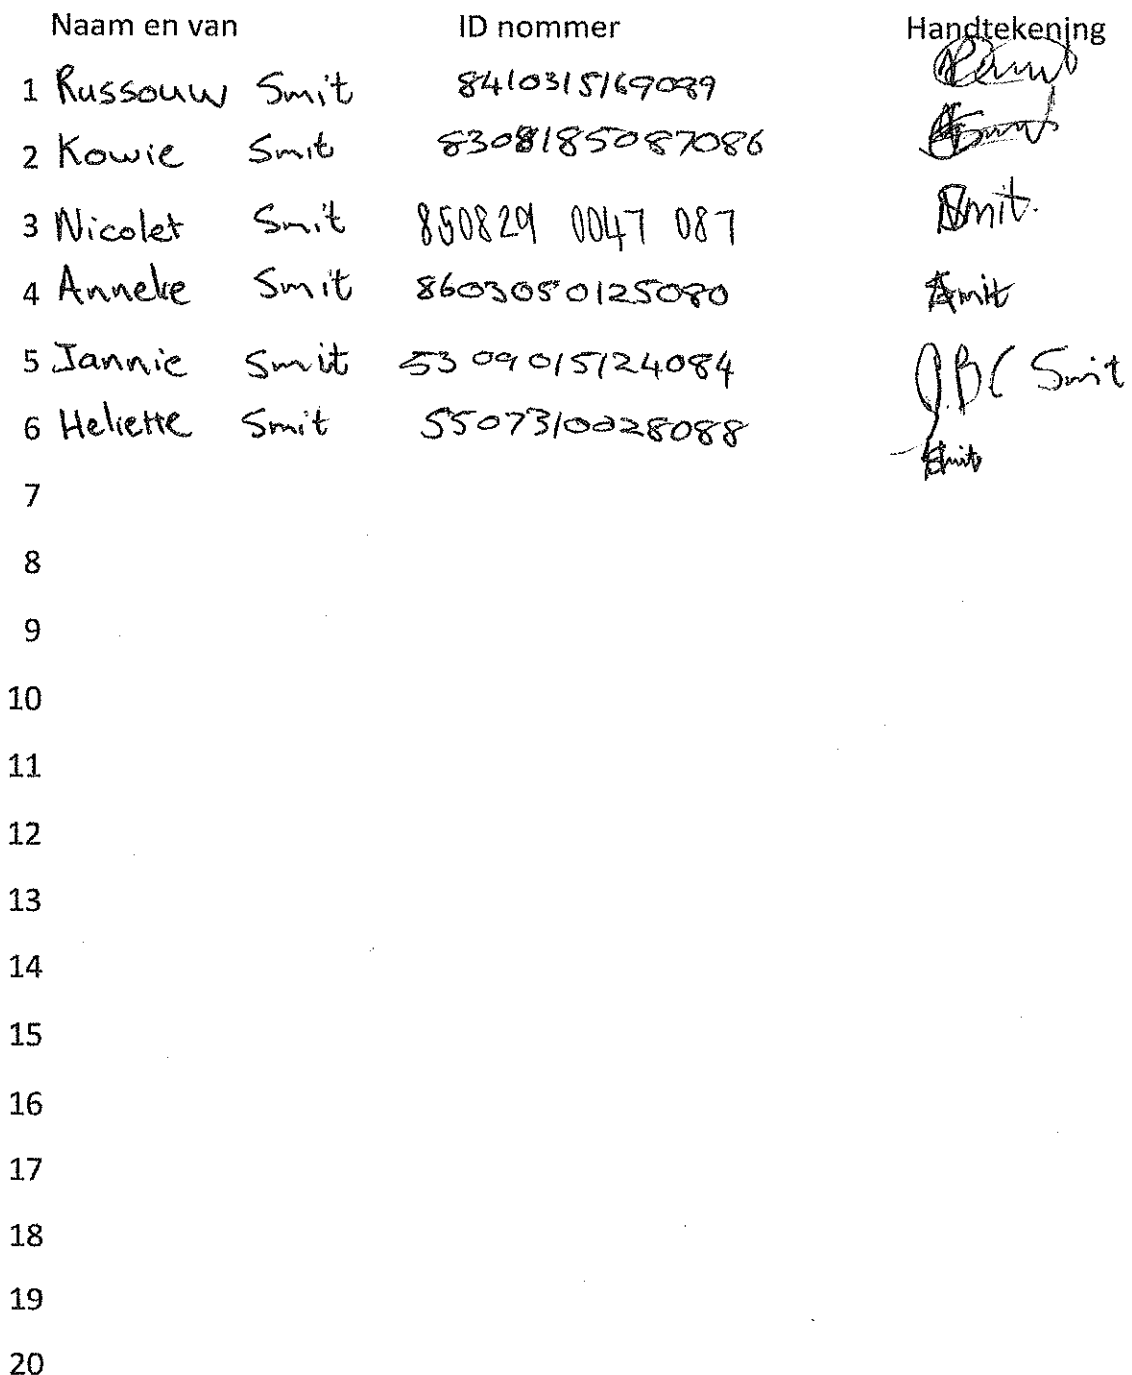 Naam en van ID nommer Handtekening
1 Russouw Smit 8410315169089
2 Kowie Smit 8308185087086
3 Nicolet Smit 850829 0047 087 Smit.
4 Anneke Smit 8603050125080 Smit
5 Jannie Smit 5309015124084 J.B.C Smit
6 Heliette Smit 5507310028088 Smit
7
8
9
10
11
12
13
14
15
16
17
18
19
20